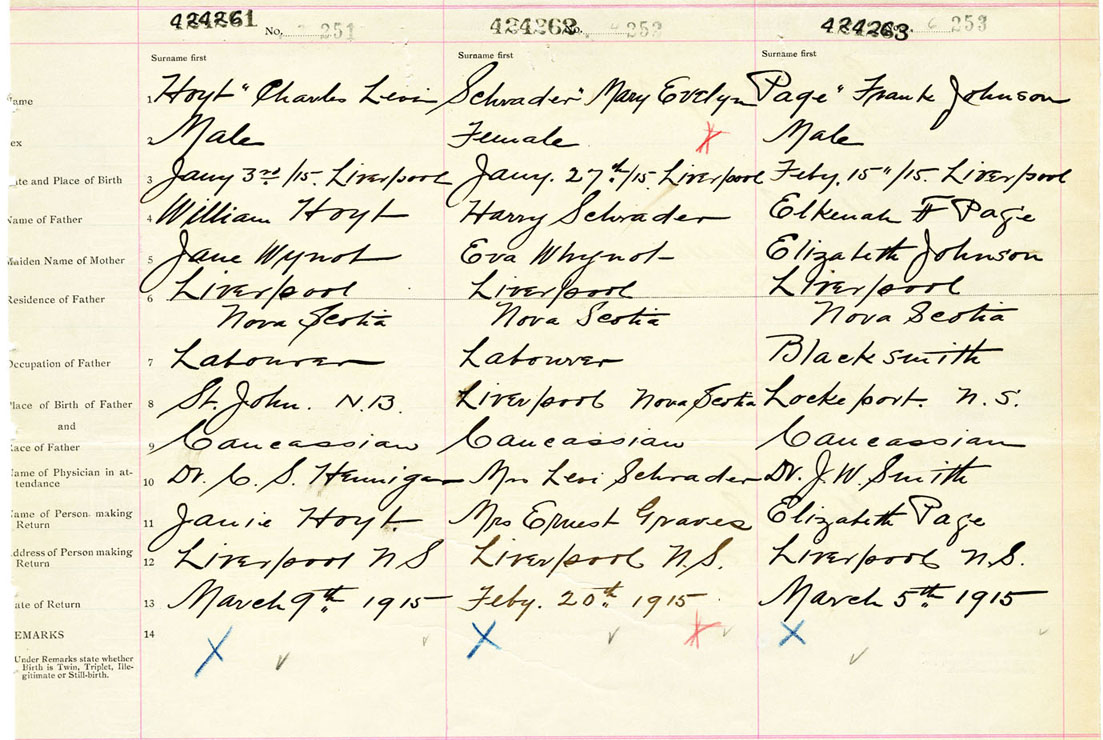 424261 No. 251 424262 No. 252 424263 6 253
Surname first Surname first Surname first
ame 1 Hoyt " Charles Levi Schrader " Mary Evelyn Page " Frank Johnson
ex 2 Male Female Male
ate and Place of Birth 3 Jany 3rd /15. Liverpool Jany. 27th /15 Liverpool Feby. 15" /15. Liverpool
Name of Father 4 William Hoyt Harry Schrader Elkenah F Page
Maiden Name of Mother 5 Jane Wynot Eva Whynot Elizabeth Johnson
Residence of Father 6 Liverpool Liverpool Liverpool
Nova Scotia Nova Scotia Nova Scotia
Occupation of Father 7 Labourer Labourer Blacksmith
Place of Birth of Father 8 St. John. N.B. Liverpool Nova Scotia Lockeport. N.S.
and
Race of Father 9 Caucassian Caucassian Caucassian
Name of Physician in at-
tendance 10 Dr. C. S. Hennigar Mrs Levi Schrader Dr. J. W. Smith
Name of Person making
Return 11 Janie Hoyt. Mrs Ernest Graves Elizabeth Page
Address of Person making
Return 12 Liverpool N S Liverpool N.S. Liverpool N.S.
ate of Return 13 March 9th 1915 Feby. 20th 1915 March 5th 1915
EMARKS 14
Under Remarks state whether
Birth is Twin, Triplet, Ille-
gitimate or Still-birth.